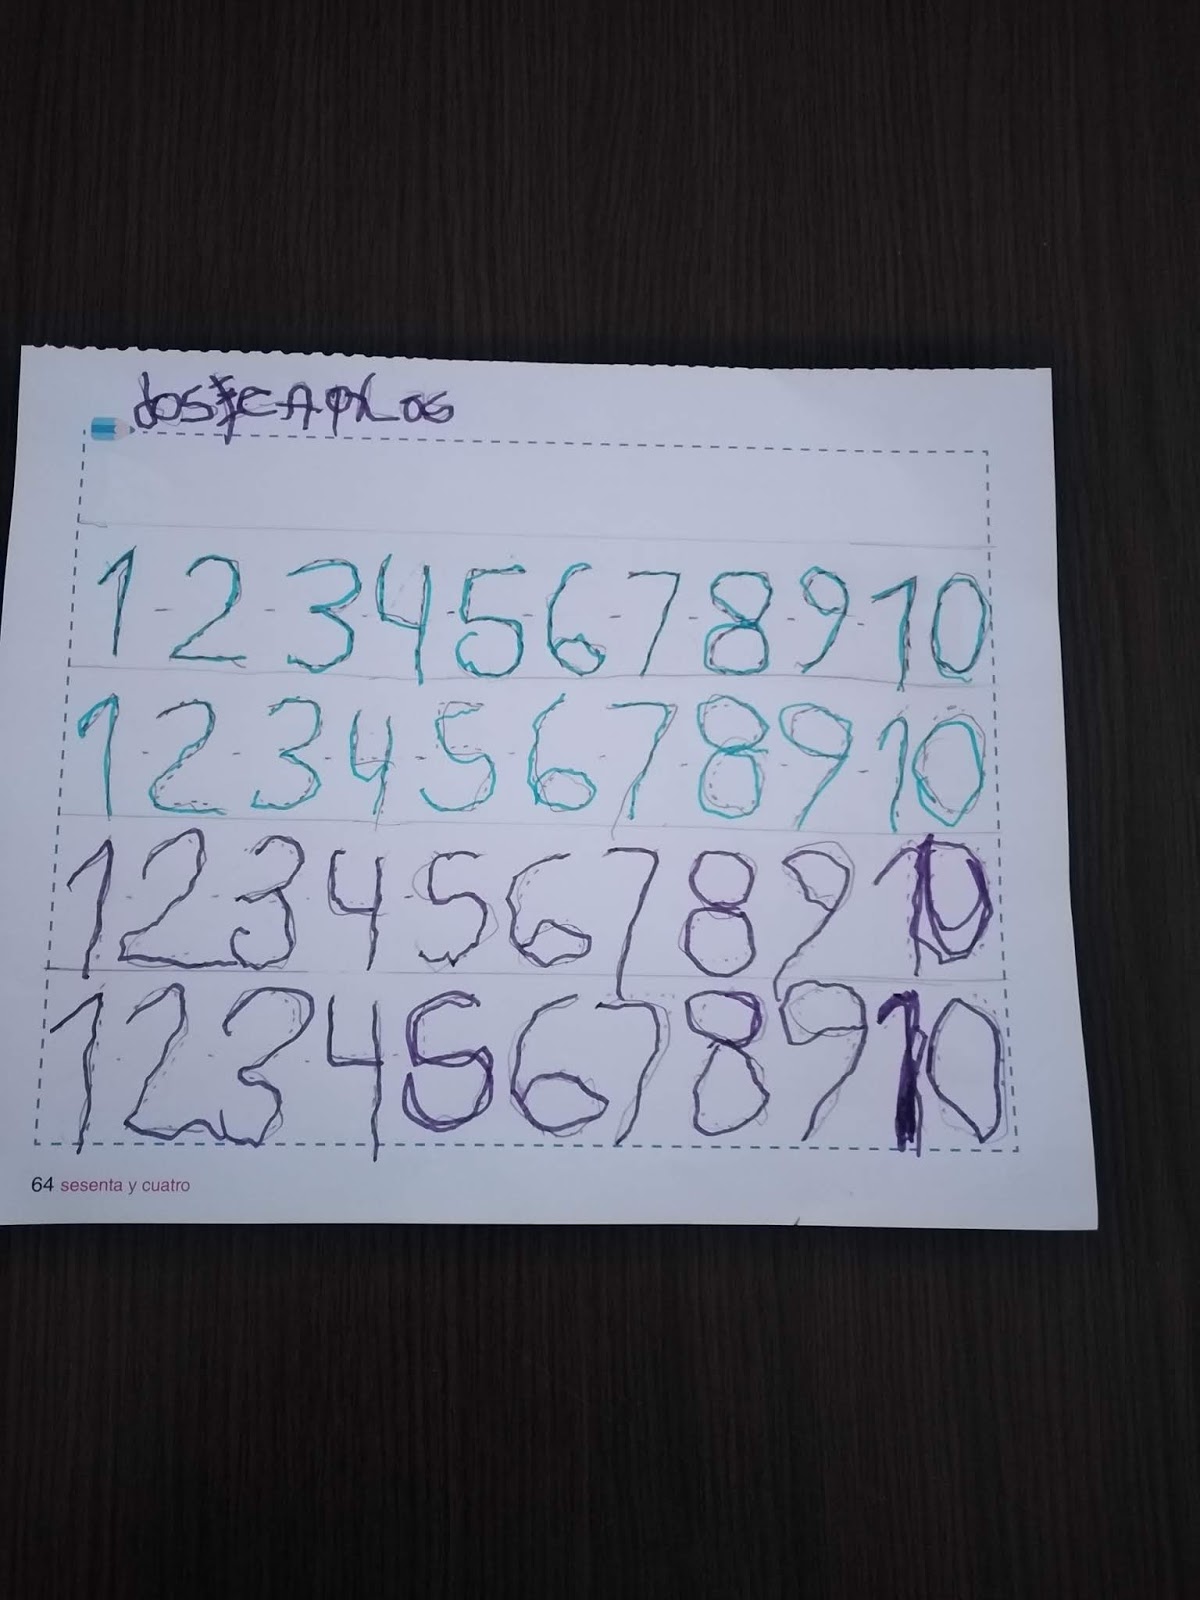 JOSE CARLOS
1 2 3 4 5 6 7 8 9 10
1 2 3 4 5 6 7 8 9 10
1 2 3 4 5 6 7 8 9 10
1 2 3 4 5 6 7 8 9 10
64 sesenta y cuatro